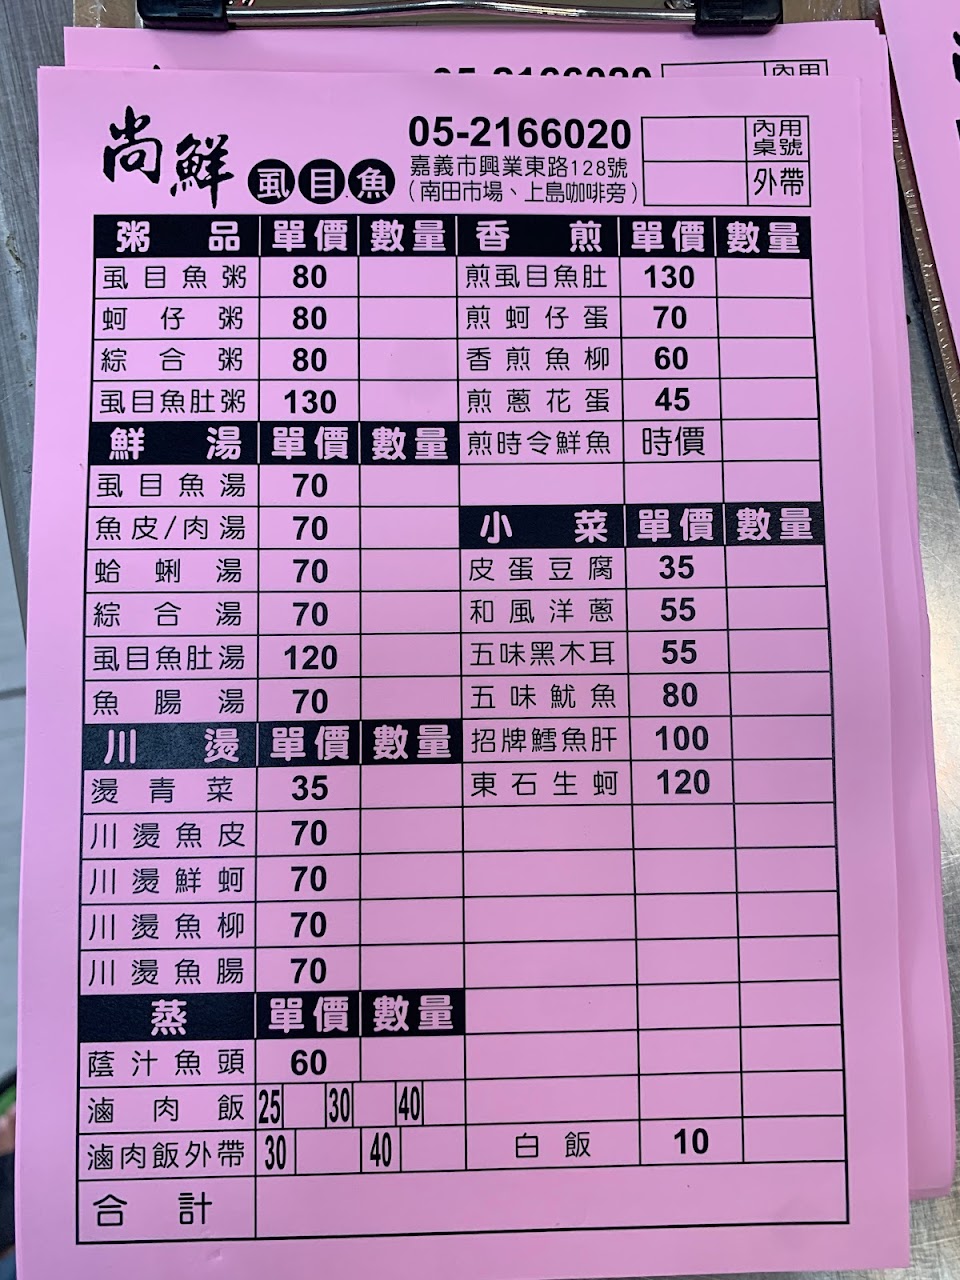 05-2166020
內用
尚鮮 虱目魚
05-2166020
嘉義市興業東路128號
（南田市場、上島咖啡旁）
內用桌號
外帶
粥品 單價 數量 香煎 單價 數量
虱目魚粥 80 煎虱目魚肚 130
蚵仔粥 80 煎蚵仔蛋 70
綜合粥 80 香煎魚柳 60
虱目魚肚粥 130 煎蔥花蛋 45
鮮湯 單價 數量 煎時令鮮魚 時價
虱目魚湯 70
魚皮/肉湯 70 小菜 單價 數量
蛤蜊湯 70 皮蛋豆腐 35
綜合湯 70 和風洋蔥 55
虱目魚肚湯 120 五味黑木耳 55
魚腸湯 70 五味魷魚 80
川燙 單價 數量 招牌鱈魚肝 100
燙青菜 35 東石生蚵 120
川燙魚皮 70
川燙鮮蚵 70
川燙魚柳 70
川燙魚腸 70
蒸 單價 數量
蔭汁魚頭 60
滷肉飯 25 30 40
滷肉飯外帶 30 40 白飯 10
合計